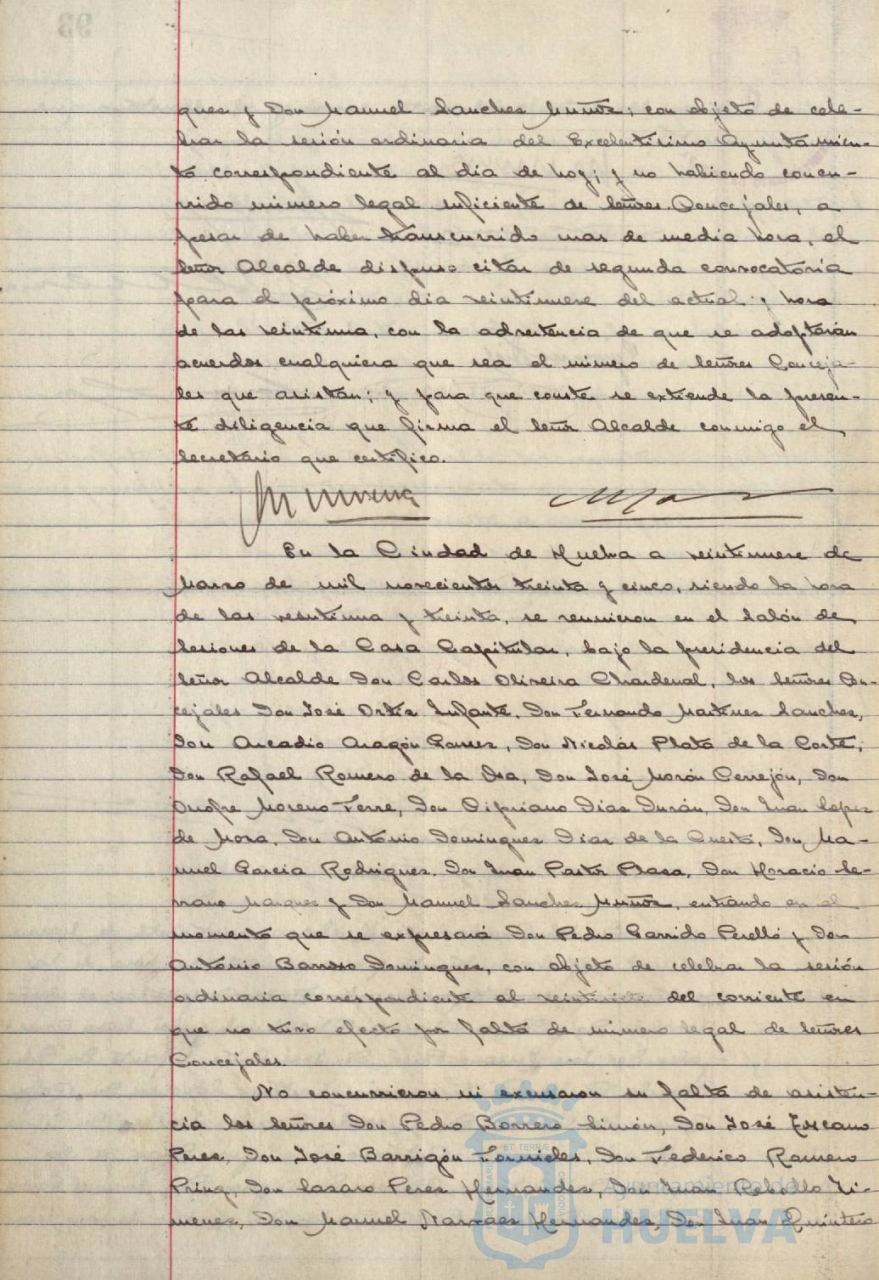 ques y Don Manuel Sanchez Muñoz; con objeto de cele-
brar la sesión ordinaria del Excelentísimo Ayuntamien-
to correspondiente al dia de hoy; y no habiendo concu-
rrido número legal suficiente de Señores Concejales, a
pesar de haber transcurrido mas de media hora, el
Señor Alcalde dispuso citar de segunda convocatoria
para el próximo dia veintinueve del actual y hora
de las veintiuna, con la advertencia de que se adoptarán
acuerdos cualquiera que sea el número de Señores Conceja-
les que asistan; y para que conste se extiende la presen-
te diligencia que firma el Señor Alcalde conmigo el
Secretario que certifico.
En la Ciudad de Huelva a veintinueve de
Marzo de mil novecientos treinta y cinco, siendo la hora
de las veintiuna y treinta, se reunieron en el Salón de
Sesiones de la Casa Capitular, bajo la presidencia del
Señor Alcalde Don Carlos Oliveira Chardenal, los Señores Con-
cejales Don José Ortiz Infante, Don Fernando Martinez Sanchez,
Don Arcadio Aragón Gomez, Don Nicolás Plata de la Corte,
Don Rafael Romero de la Osa, Don José Morón Cerrejón, Don
Onofre Moreno Terre, Don Cipriano Diaz Durán, Don Juan Lopez
de Mora, Don Antonio Dominguez Diaz de la Cuesta, Don Ma-
nuel Garcia Rodriguez, Don Juan Pastor Plaza, Don Horacio Se-
rrano Marques y Don Manuel Sanchez Muñoz, entrando en el
momento que se expresará Don Pedro Garrido Perelló y Don
Antonio Barroso Dominguez, con objeto de celebrar la sesión
ordinaria correspondiente al veintisiete del corriente en
que no tuvo efecto por falta de número legal de Señores
Concejales.
No concurrieron ni excusaron su falta de asisten-
cia los Señores Don Pedro Borrero Limón, Don José Escano
Perez, Don José Barrigón Fornieles, Don Federico Romero
Don Lazaro Perez Hernandez, Don Juan Rebollo Ji-
menez, Don Manuel Narvaez Hernandez, Don Juan Quintero
Ayuntamiento de
HUELVA